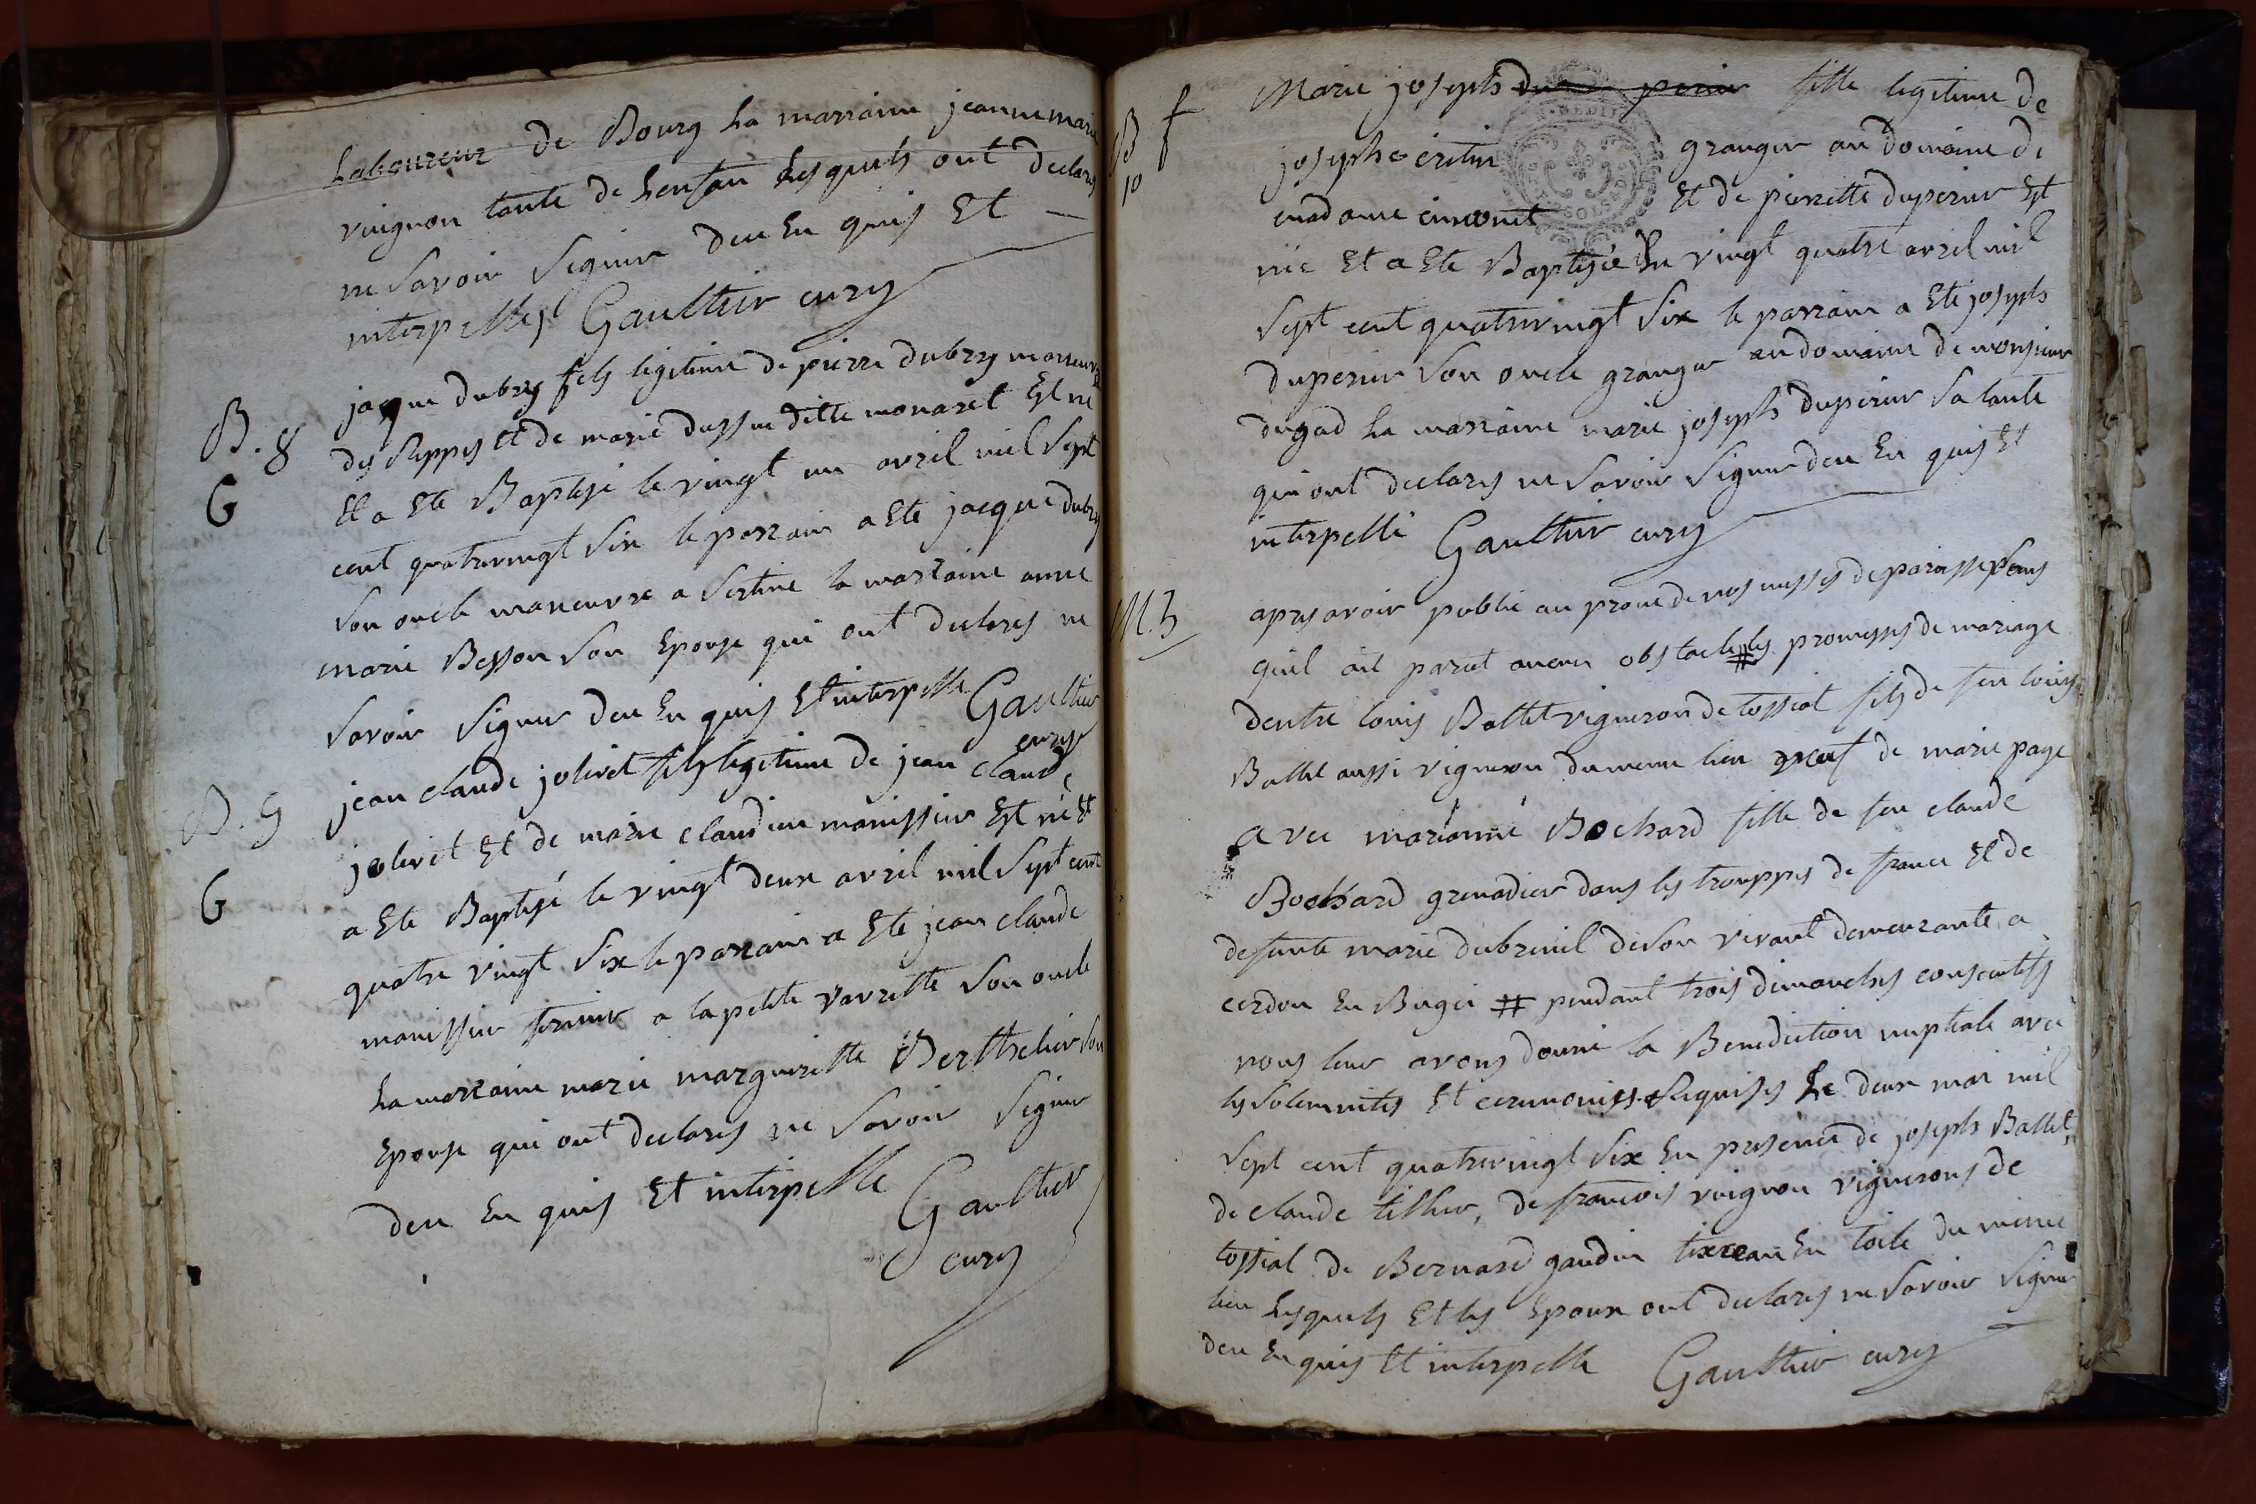 Laboureur de Bourg La marraine jeanne marie
vuignon tante de Lenfan Lesquels ont declarés
ne savoir signer deu En quis Et
interpellés Gaulthier curé
B. 8
G
jaque dubry fils legitime de pierre dubry maneuvre
des Rippes et de marie dite monaret Est né
Et a Eté Baptisé le vingt un avril mil sept
cent quatrevingt six le parrain a Eté jacque dubry
son oncle maneuvre a la marraine anne
marie Besson son Epouse qui ont declarés ne
savoir signer deu En quis Et interpelle Gaulthier
curé
B. 9
G
jean claude jolivet fils legitime de jean claude
jolivet Et de marie claudine manissier Est né Et
a Eté Baptisé le vingt deux avril mil sept cent
quatre vingt six le parrain a Eté jean claude
manissier fermier a la petite vavrette son oncle
La marraine marie marguerite Berthelier son
Epouse qui ont declarés ne savoir signer
deu En quis Et interpelle Gaulthier
curé
B
10
f
Marie joseph fille legitime de
josephe granger au domaine de
madame Et de pierrette duperier Est
née Et a Eté Baptisée Le vingt quatre avril mil
sept cent quatrevingt six le parrain a Eté joseph
duperier son oncle granger au domaine de monsieur
dugad La marraine marie joseph duperier sa tante
qui ont declarés ne savoir signer deu En quis Et
interpellé Gaulthier curé
M. 3
apres avoir publié au prone de nos messes de paroisse sans
quil ait parut aucun obstacle # les promesses de mariage
dentre louis Ballet vigneron de tossiat fils de feu louis
Ballet aussi vigneron du meme lieu veuf de marie page
avec marianne Bochard fille de feu claude
Bochard grenadier dans les trouppes de france Et de
defunte marie dubreuil de son vivant demeurante a
cerdon En Bugei # pendant trois dimanches consecutifs
nous leur avons donné la Benediction nuptiale avec
les solemnités Et ceremonies Requises Le deux mai mil
sept cent quatrevingt six En presence de joseph Ballet,
de claude tillier, de francois vuignon vignerons de
tossiat de Bernard gaudin tixeran En toile du meme
lieu Lesquels Et les Epoux ont declarés ne savoir signer
deu En quis Et interpelle Gaulthier curé